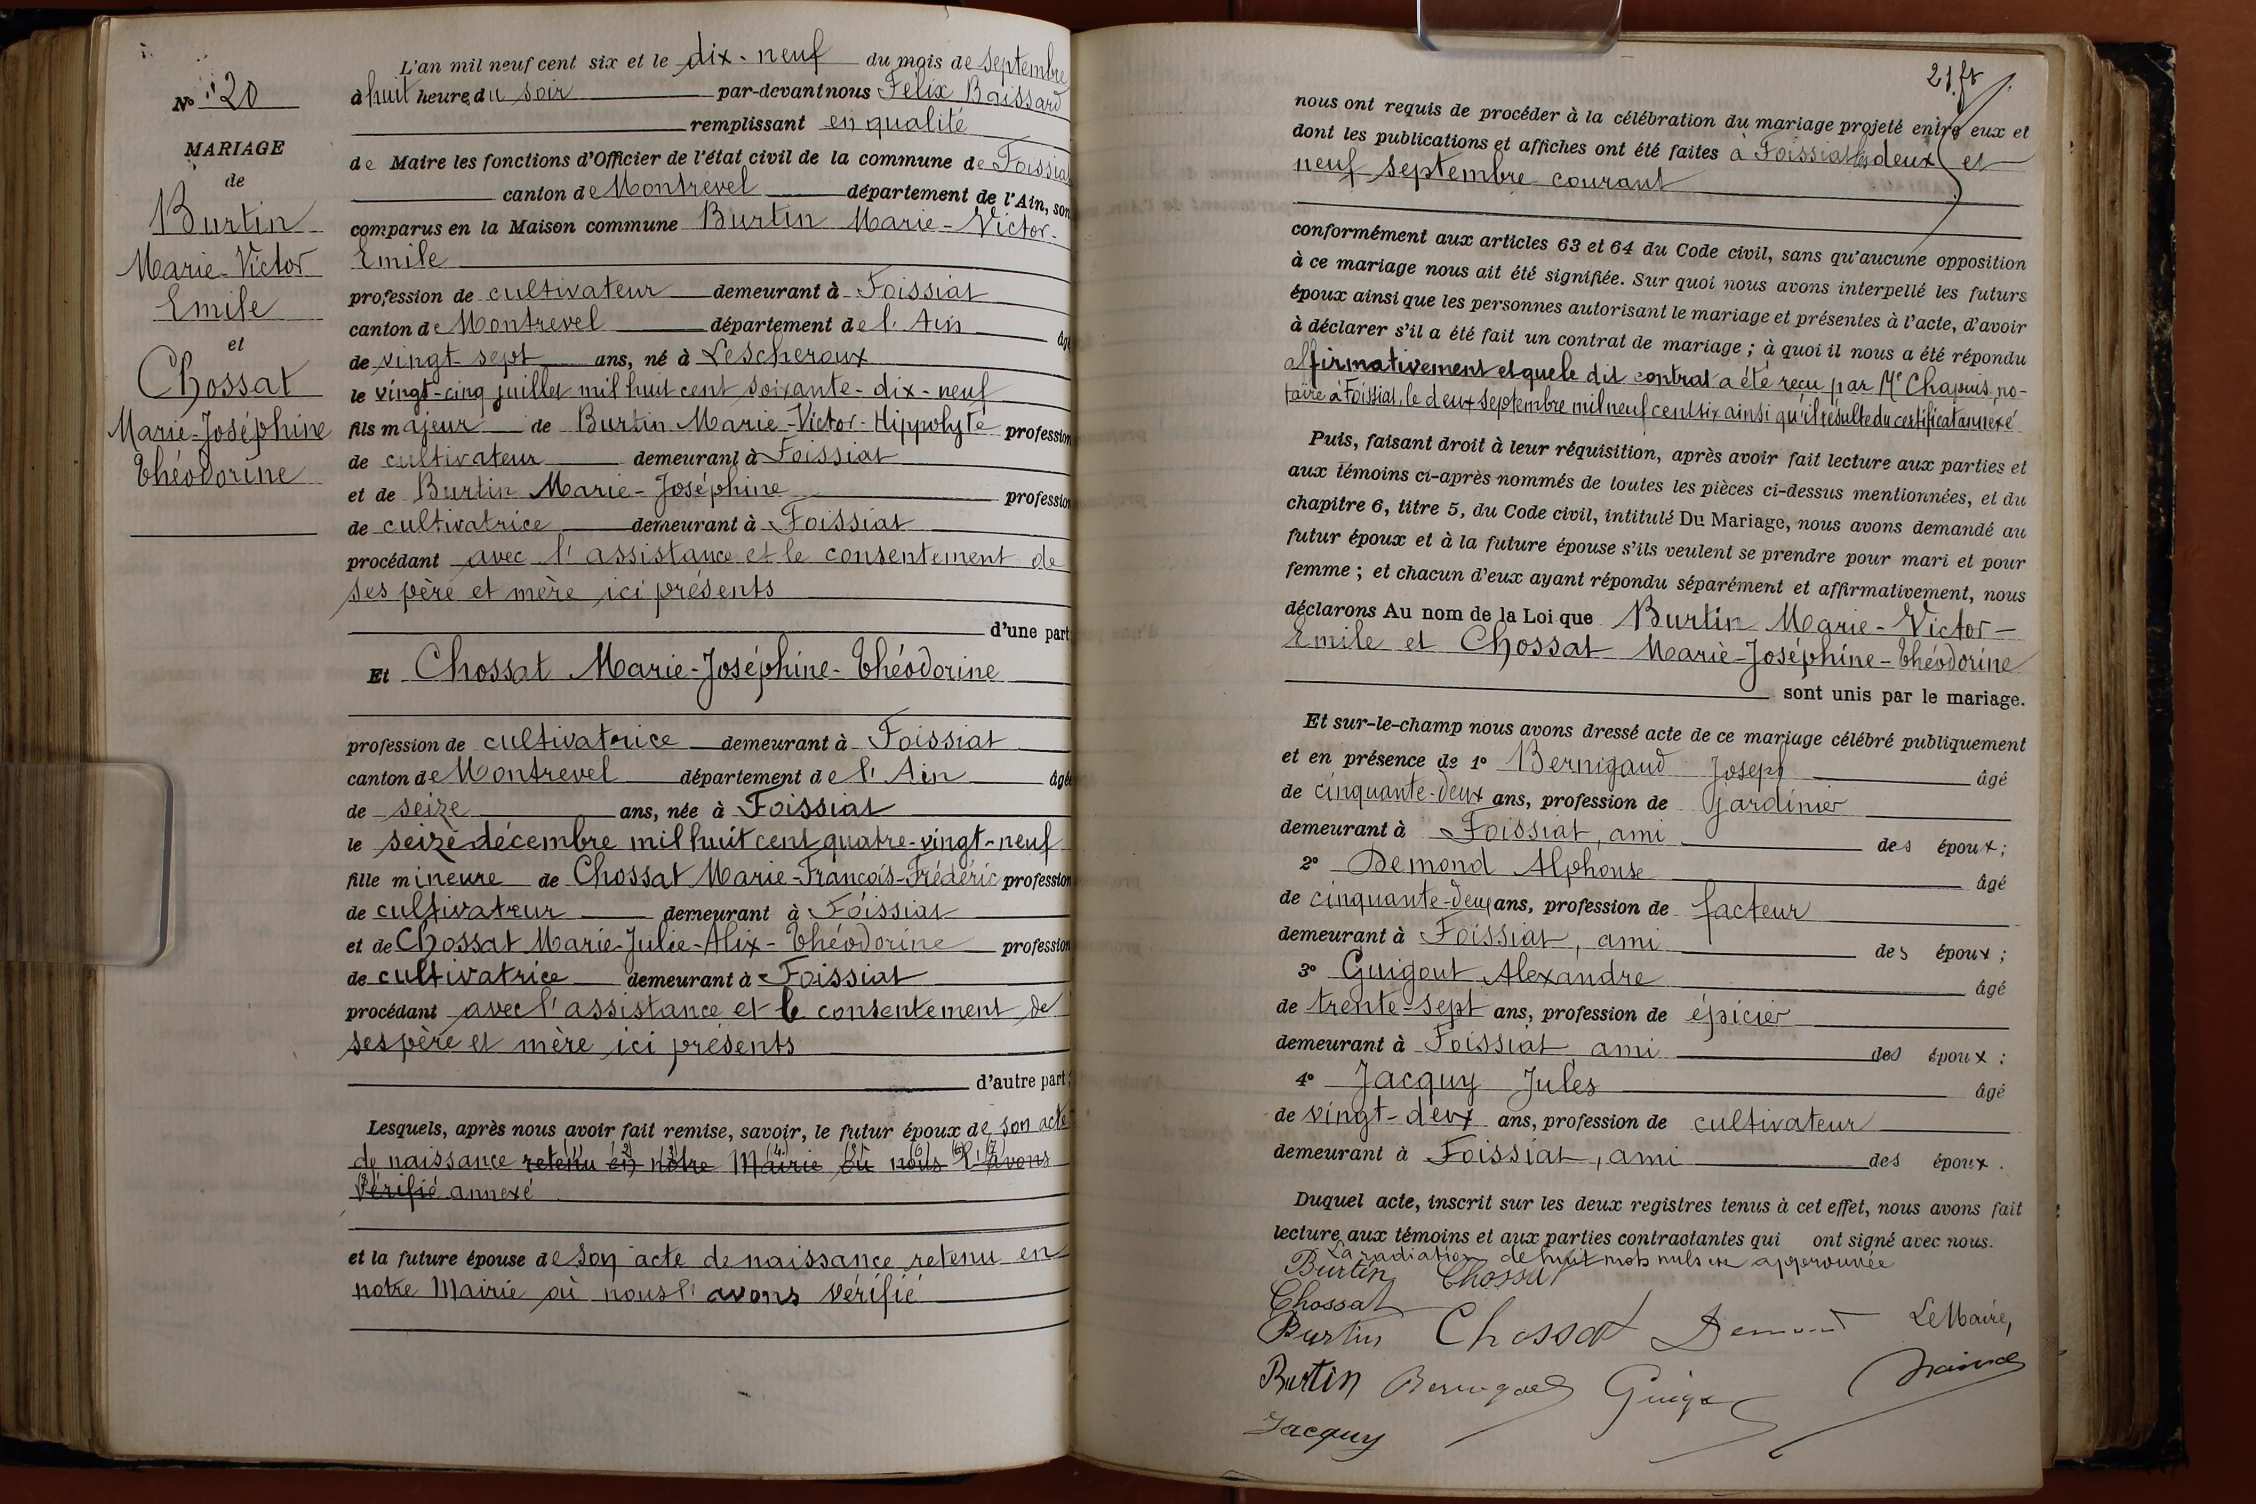 N° 20
MARIAGE
de
Burtin
Marie-Victor
Emile
et
Chossat
Marie-Joséphine
Théodorine
L'an mil neuf cent six et le dix-neuf du mois de septembre
à huit heure du soir par-devant nous Félix Baissard
remplissant en qualité
de Maire les fonctions d'Officier de l'état civil de la commune de Foissiat
canton de Montrevel département de l'Ain, son
comparus en la Maison commune Burtin Marie-Victor-
Emile
profession de cultivateur demeurant à Foissiat
canton de Montrevel département de l'Ain âgé
de vingt sept ans, né à Lescheroux
le vingt-cinq juillet mil huit cent soixante-dix-neuf
fils majeur de Burtin Marie-Victor-Hippolyte profession
de cultivateur demeurant à Foissiat
et de Burtin Marie-Joséphine profession
de cultivatrice demeurant à Foissiat
procédant avec l'assistance et le consentement de
ses père et mère ici présents
d'une part
Et Chossat Marie-Joséphine-Théodorine
profession de cultivatrice demeurant à Foissiat
canton de Montrevel département de l'Ain âgée
de seize ans, née à Foissiat
le seize décembre mil huit cent quatre-vingt-neuf
fille mineure de Chossat Marie-François-Frédéric profession
de cultivateur demeurant à Foissiat
et de Chossat Marie-Julie-Alix-Théodorine profession
de cultivatrice demeurant à Foissiat
procédant avec l'assistance et le consentement de
ses père et mère ici présents
d'autre part;
Lesquels, après nous avoir fait remise, savoir, le futur époux de son acte
de naissance retenu en notre Mairie où nous l'avons
vérifié annexé
et la future épouse de son acte de naissance retenu en
notre Mairie où nous l'avons vérifié
21. ft
nous ont requis de procéder à la célébration du mariage projeté entre eux et
dont les publications et affiches ont été faites à Foissiat les deux et
neuf septembre courant
conformément aux articles 63 et 64 du Code civil, sans qu'aucune opposition
à ce mariage nous ait été signifiée. Sur quoi nous avons interpellé les futurs
époux ainsi que les personnes autorisant le mariage et présentes à l'acte, d'avoir
à déclarer s'il a été fait un contrat de mariage; à quoi il nous a été répondu
affirmativement et que le dit contrat a été reçu par Me Chapuis, no-
taire à Foissiat, le deux septembre mil neuf cent six ainsi qu'il résulte du certificat annexé
Puis, faisant droit à leur réquisition, après avoir fait lecture aux parties et
aux témoins ci-après nommés de toutes les pièces ci-dessus mentionnées, et du
chapitre 6, titre 5, du Code civil, intitulé Du Mariage, nous avons demandé au
futur époux et à la future épouse s'ils veulent se prendre pour mari et pour
femme; et chacun d'eux ayant répondu séparément et affirmativement, nous
déclarons Au nom de la Loi que Burtin Marie-Victor-
Emile et Chossat Marie-Joséphine-Théodorine
sont unis par le mariage.
Et sur-le-champ nous avons dressé acte de ce mariage célébré publiquement
et en présence de 1° Bernigaud Joseph âgé
de cinquante-deux ans, profession de jardinier
demeurant à Foissiat, ami des époux;
2° Demond Alphonse âgé
de cinquante-deux ans, profession de facteur
demeurant à Foissiat, ami des époux;
3° Guigout Alexandre âgé
de trente-sept ans, profession de épicier
demeurant à Foissiat ami des époux;
4° Jacquy Jules âgé
de vingt-deux ans, profession de cultivateur
demeurant à Foissiat, ami des époux.
Duquel acte, inscrit sur les deux registres tenus à cet effet, nous avons fait
lecture aux témoins et aux parties contractantes qui ont signé avec nous.
La radiation de huit mots nuls est approuvée
Burtin Chossat
Chossat
Burtin Chossat Demond Le Maire,
Burtin
Jacquy